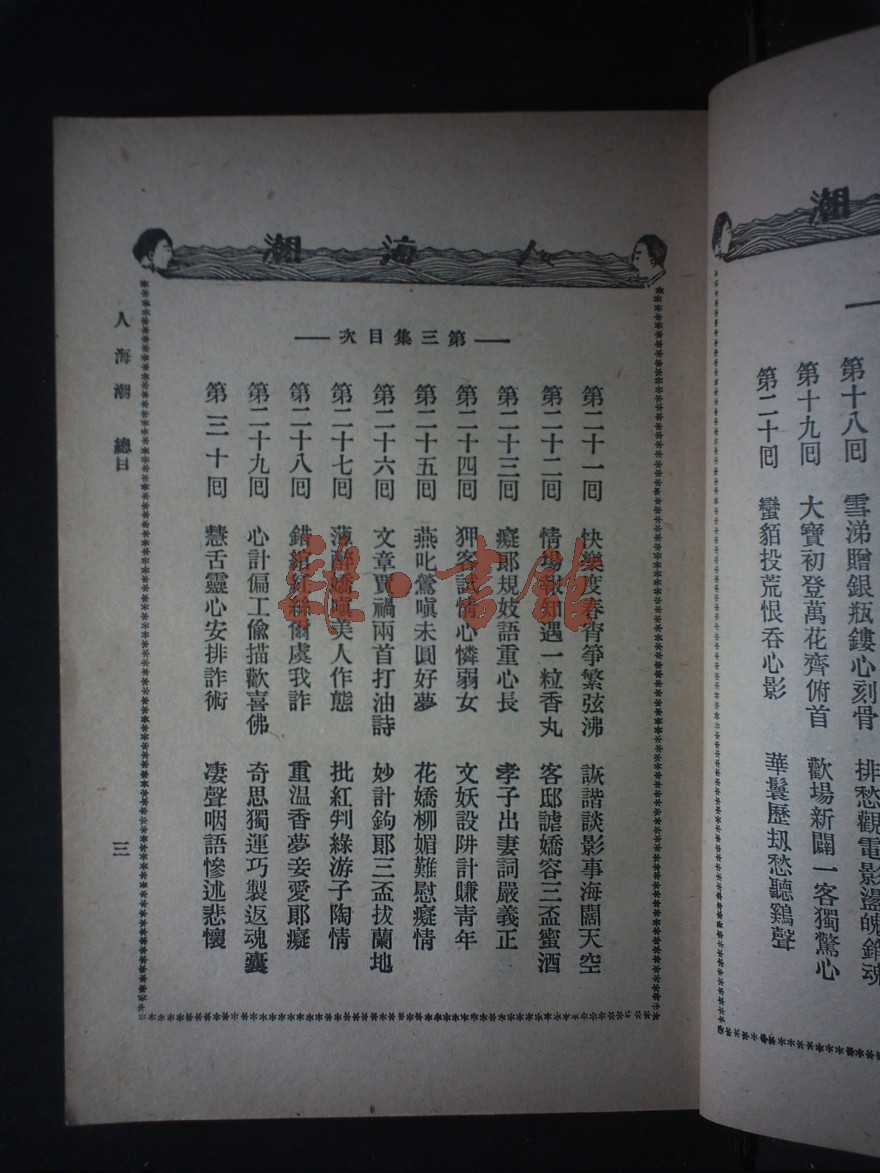 潮
第十八回 雪涕贈銀瓶鏤心刻骨 排愁觀電影盪魄銷魂
第十九回 大寶初登萬花齊俯首 歡場新闢一客獨驚心
第二十回 蠻貊投荒恨吞心影 華鬘歷刼愁聽鷄聲
人海潮
第三集目次
第二十一回 快樂度春宵箏繁弦沸 詼諧談影事海闊天空
第二十二回 情場報知遇一粒香丸 客邸謔嬌容三盃蜜酒
第二十三回 癡郞規妓語重心長 孝子出妻詞嚴義正
第二十四回 狎客談情心憐弱女 文妖設阱計賺青年
第二十五回 燕叱鶯嗔未圓好夢 花嬌柳媚難慰癡情
第二十六回 文章賈禍兩首打油詩 妙計鉤郞三盃拔蘭地
第二十七回 薄醉嬌嗔美人作態 批紅判綠游子陶情
第二十八回 錯綰紅絲爾虞我詐 重温香夢妾愛郞癡
第二十九回 心計偏工偸描歡喜佛 奇思獨運巧製返魂囊
第三十回 慧舌靈心安排詐術 凄聲咽語慘述悲懷
人海潮 總目 三
雜·書館